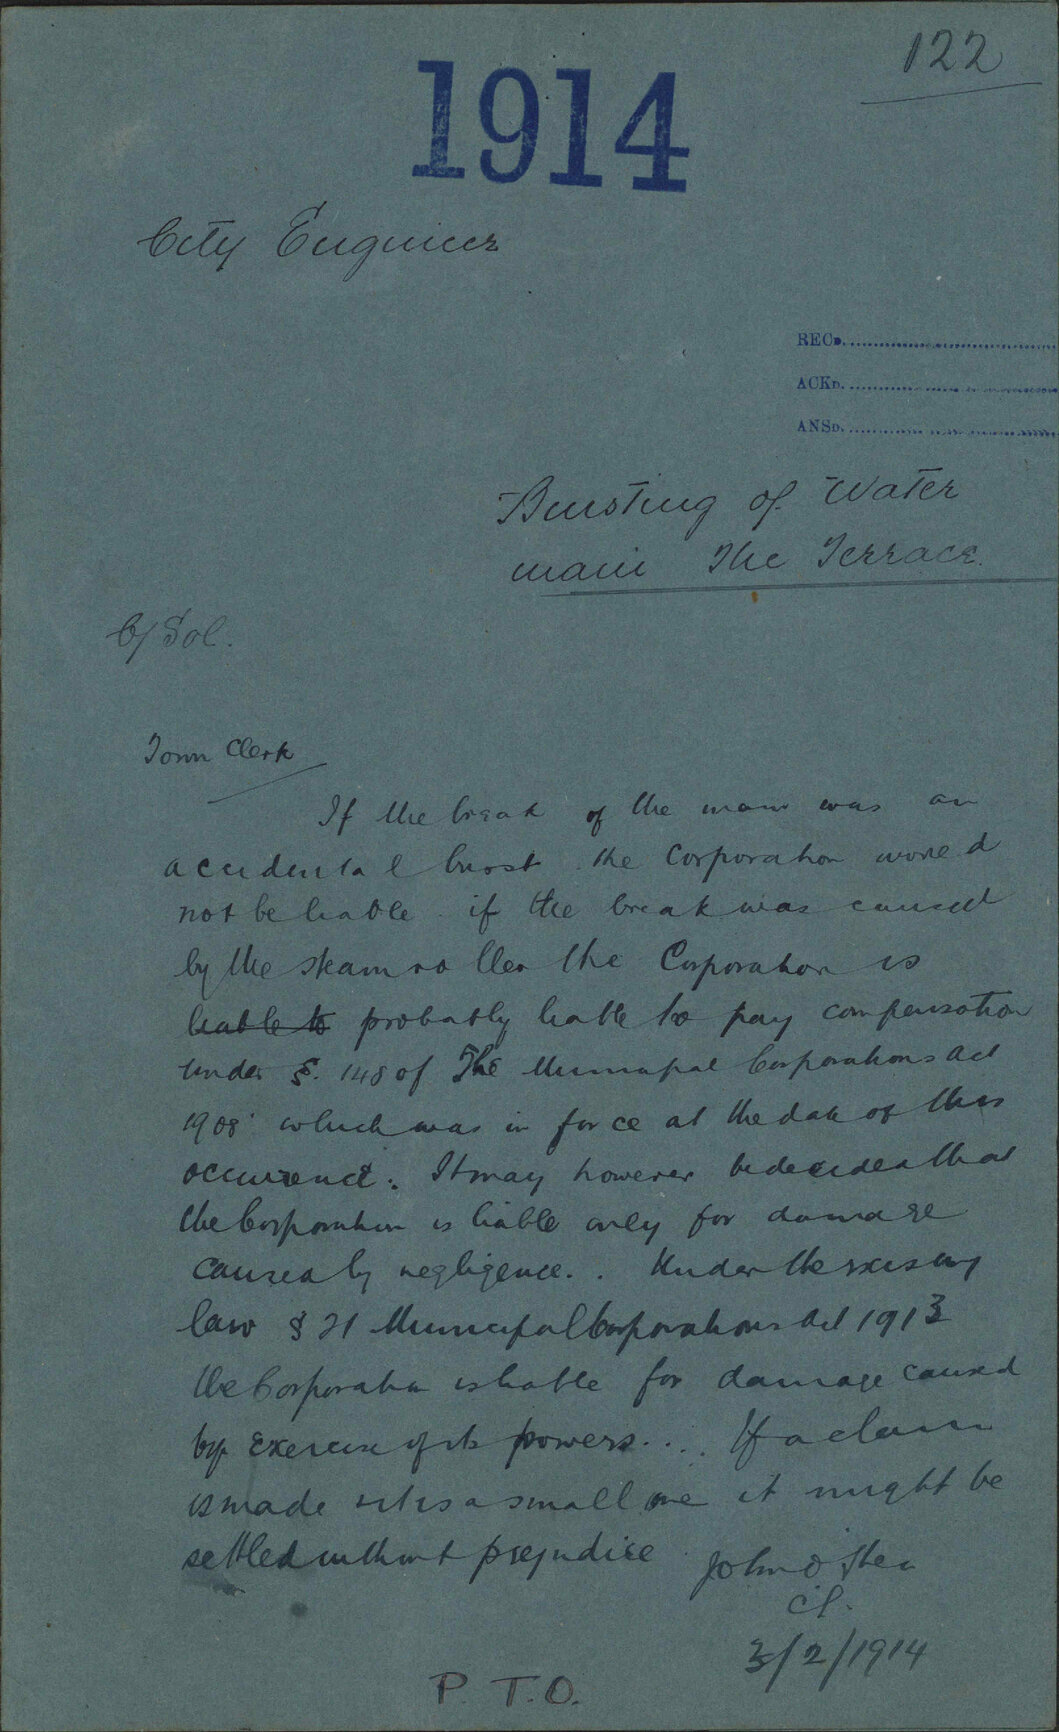 122
1914
City Engineer
RECD.
ACKD.
ANSD.
Bursting of Water
main The Terrace.
C/Sol.
Town Clerk
If the break of the main was an
accidental burst the Corporation would
not be liable if the break was caused
by the steam roller the Corporation is
liable to probably liable to pay compensation
under §. 148 of The Municipal Corporations Act
1908 which was in force at the date of this
occurrence. It may however be decided that
the Corporation is liable only for damage
caused by negligence. Under the existing
law § 21 Municipal Corporations Act 1913
the Corporation is liable for damage caused
by exercise of its powers.... If a claim
is made & it is a small one it might be
settled without prejudice
John O'Shea
C.S.
3/2/1914
P.T.O.